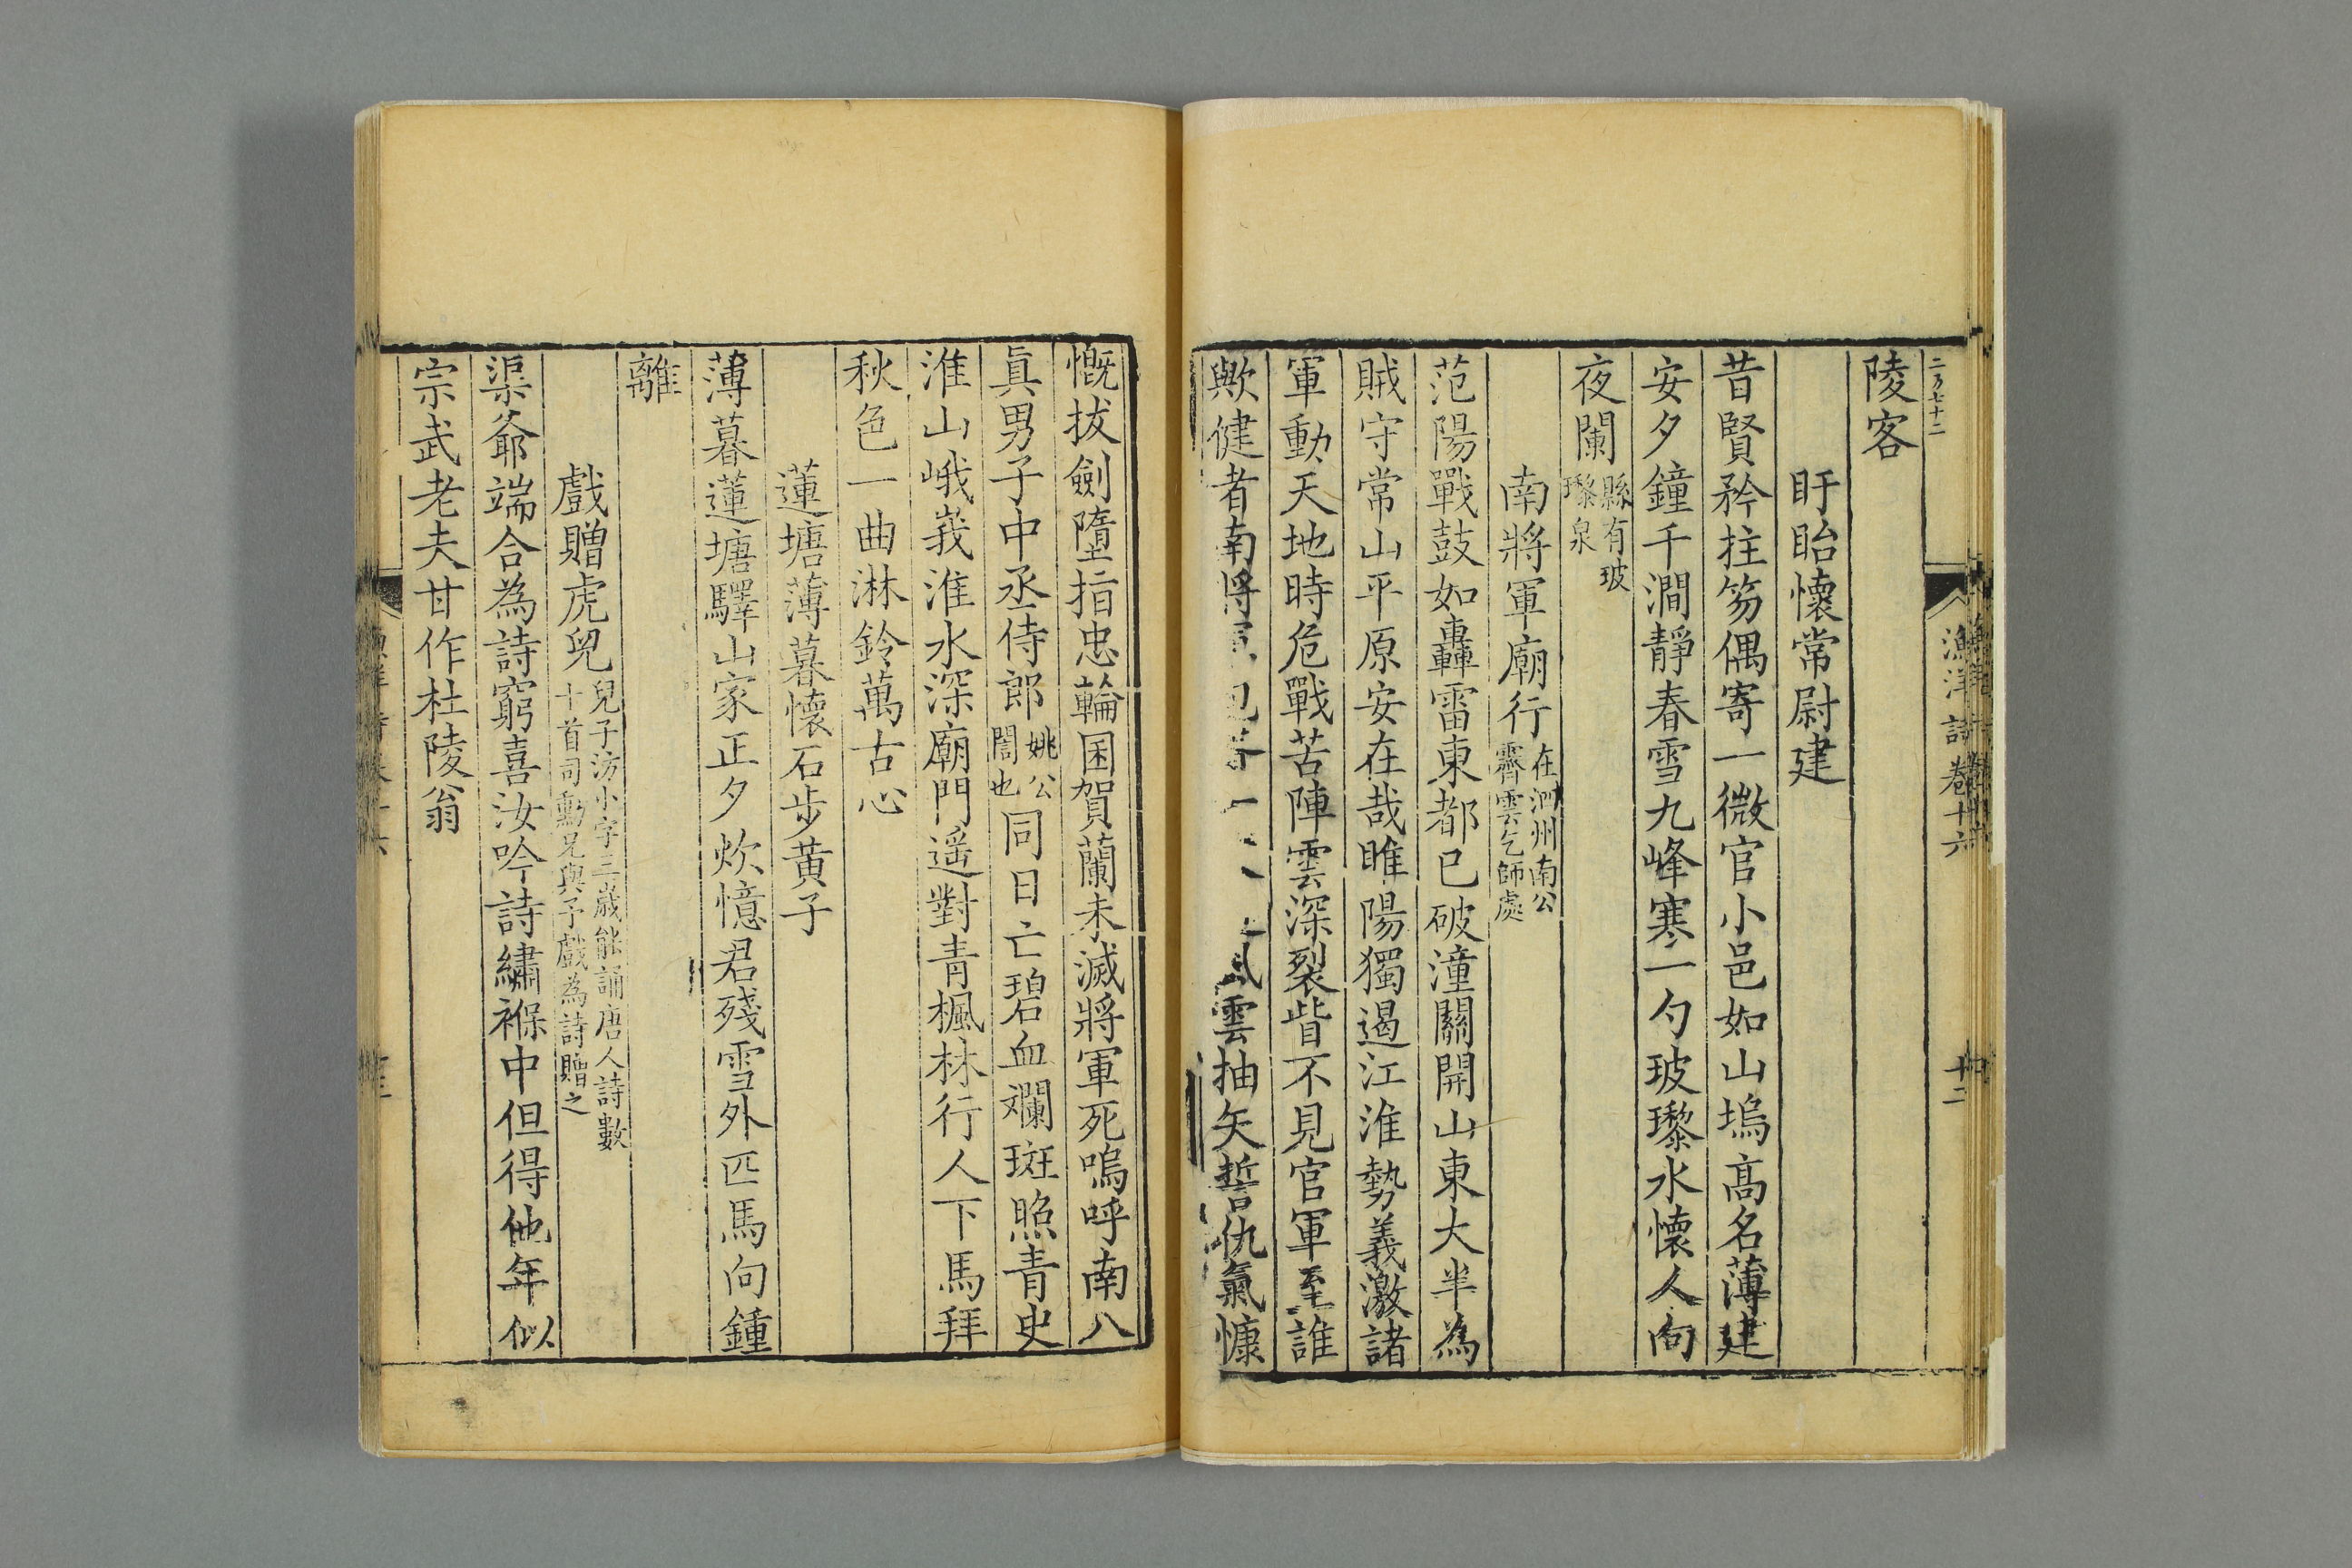 二万七十二
漁洋詩卷十六
十二
陵客
盱眙懷常尉建
昔賢矜拄笏偶寄一微官小邑如山塢高名薄建
安夕鐘千澗靜春雪九峰寒一勺玻瓈水懷人向
夜闌縣有玻瓈泉
南將軍廟行在泗州南公霽雲乞師處
范陽戰鼓如轟雷東都已破潼關開山東大半為
賊守常山平原安在哉睢陽獨遏江淮勢義激諸
軍動天地時危戰苦陣雲深裂眥不見官軍至誰
歟健者南將風雲抽矢誓仇氣慷
慨拔劍墮指忠輪囷賀蘭未滅將軍死嗚呼南八
眞男子中丞侍郎姚公誾也同日亡碧血斕斑照青史
淮山峨峩淮水深廟門遥對青楓林行人下馬拜
秋色一曲淋鈴萬古心
蓮塘薄暮懷石步黄子
薄暮蓮塘驛山家正夕炊憶君殘雪外匹馬向鍾
離
戲贈虎兒兒子汸小字三嵗能誦唐人詩數十首司勳兄與子戲為詩贈之
渠爺端合為詩窮喜汝吟詩繡褓中但得他年似
宗武老夫甘作杜陵翁